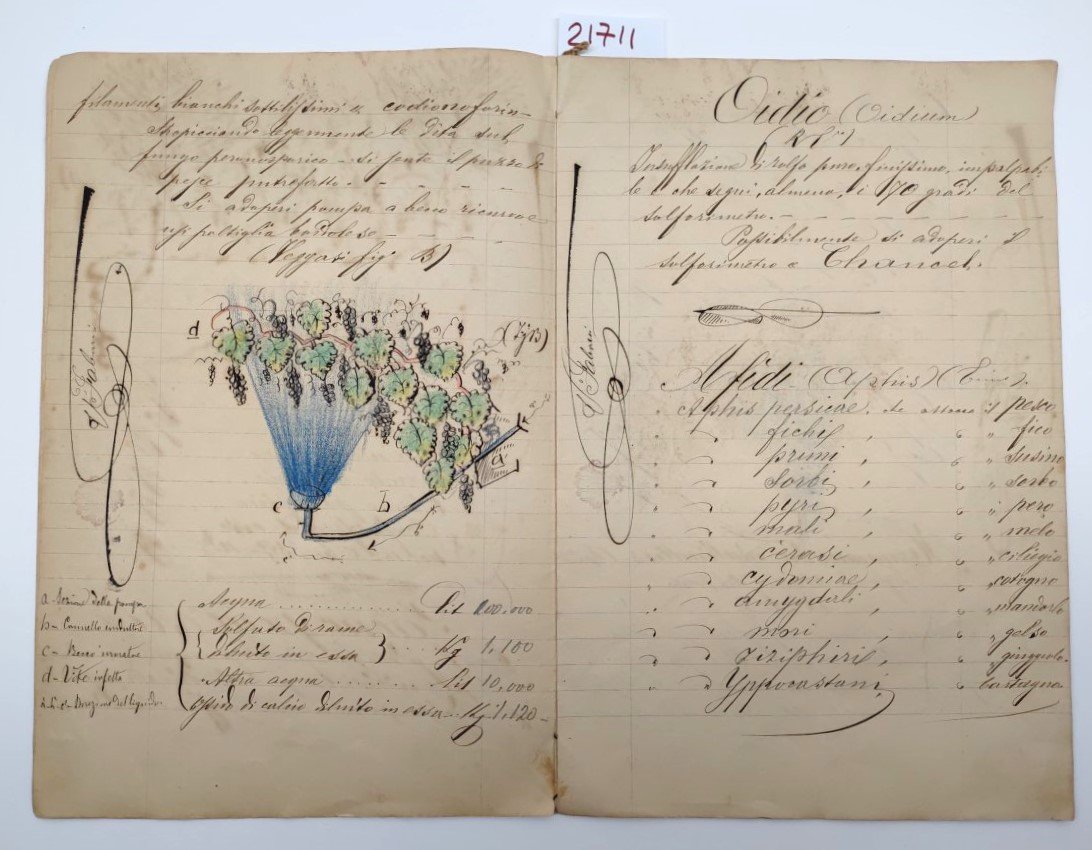 21711
filamenti bianchi sottilissimi
Stropicciando leggermente le dita sul
fungo peronosporico - si sente il puzzo di
pesce putrefatto. - - - -
Si adoperi pompa a becco ricurvo e
poltiglia bordolese - - - -
(Veggasi fig B)
d
(Fig B)
a
c
b
V Fabrini
a - Sezione della pompa
b - Cannello conduttore
c - Becco
d - Vite infetta
Acqua .............. Lit 100,000
Solfato di rame
diluito in essa } ... Kg 1,100
Altra acqua ........... Lit 10,000
Ossido di calcio diluito in essa .. Kg 1,120 -
Oidio (Oidium)
Insufflazione di zolfo puro, finissimo, impalpabi-
le e che segni, almeno, i 70 gradi del
solforimetro. - - - - - - -
Possibilmente si adoperi il
solforimetro Chancel.
V Fabrini
Afidi (Aphis)
Aphis persicae, che attacca il pesco
" fichi, " " fico
" pruni " " susino
" Sorbi, " " sorbo
" pyri, " " pero
" mali " " melo
" cerasi " " ciliegio
" cydoniae, " " cotogno
" amygdali " " mandorlo
" mori " " gelso
" Ziziphi, " " giuggiolo
" Yppocastani, " castagno